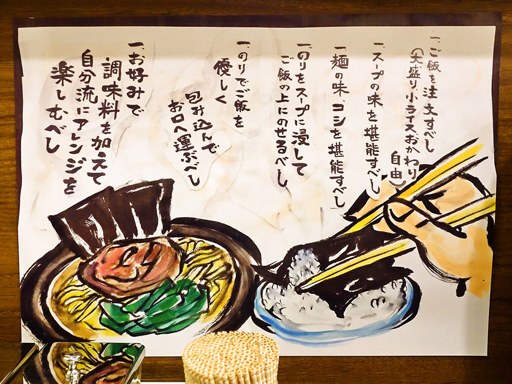 一、ご飯を注文すべし
(大盛り小ライスおかわり
自由)
一、スープの味を堪能すべし
一、麺の味 コシを堪能すべし
一、のりをスープに浸して
ご飯の上にのせるべし
一、のりでご飯を
優しく
包み込んで
お口へ運ぶべし
一、お好みで
調味料を加えて
自分流にアレンジを
楽しむべし